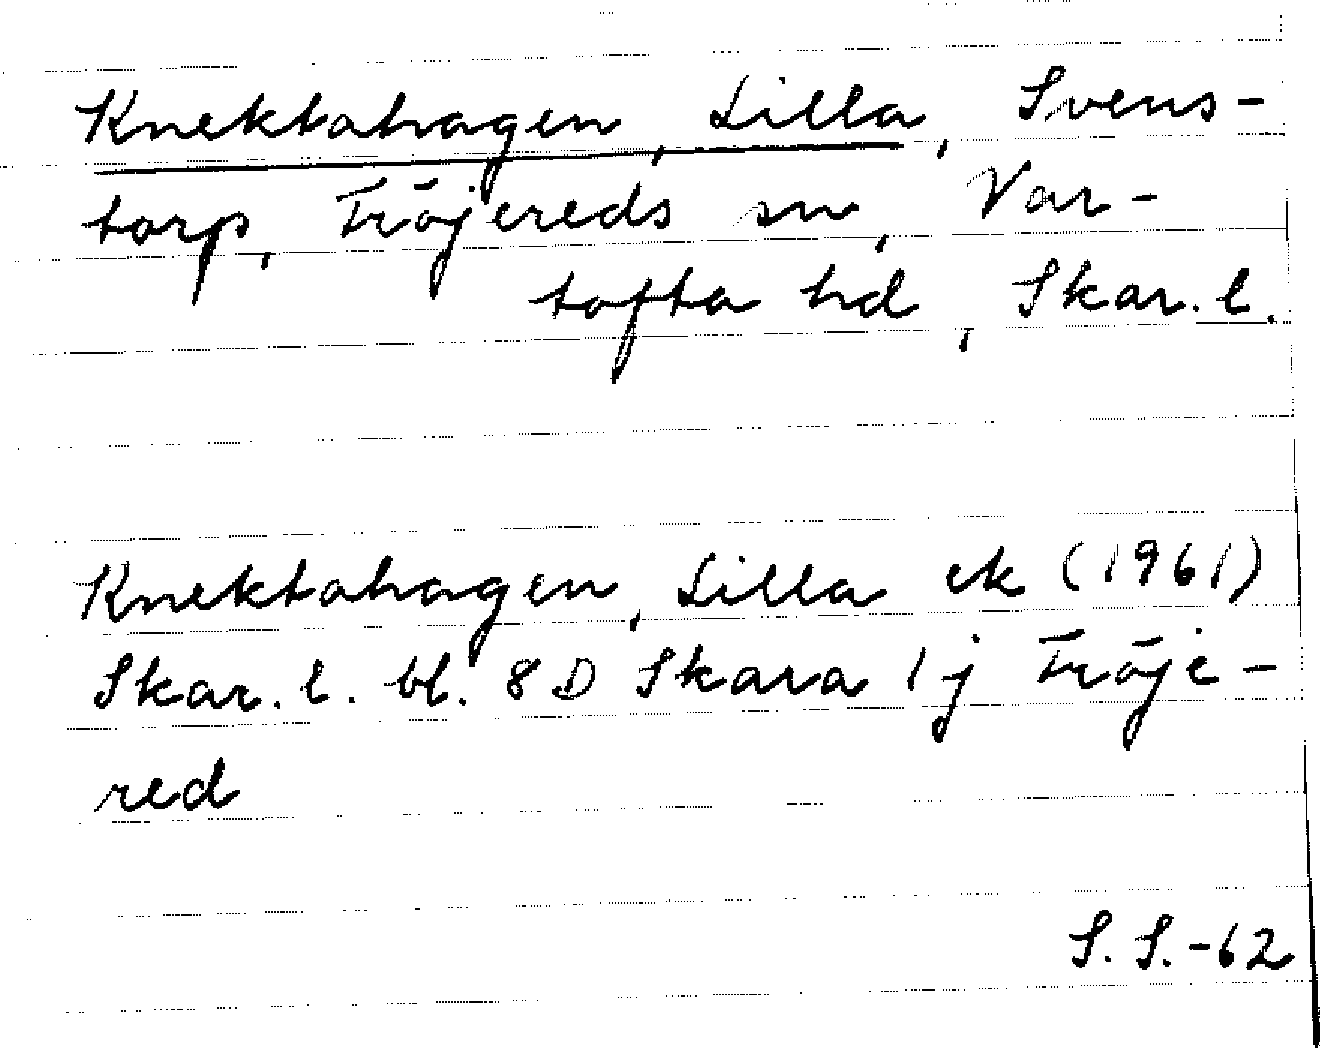 Knektahagen, Lilla, Svens-
torp, Tröjereds sn, Var-
tofta hd, Skar. l.
Knektahagen, Lilla ek (1961)
Skar. l. bl. 8 D Skara 1 j Tröje-
red
S. S. -62